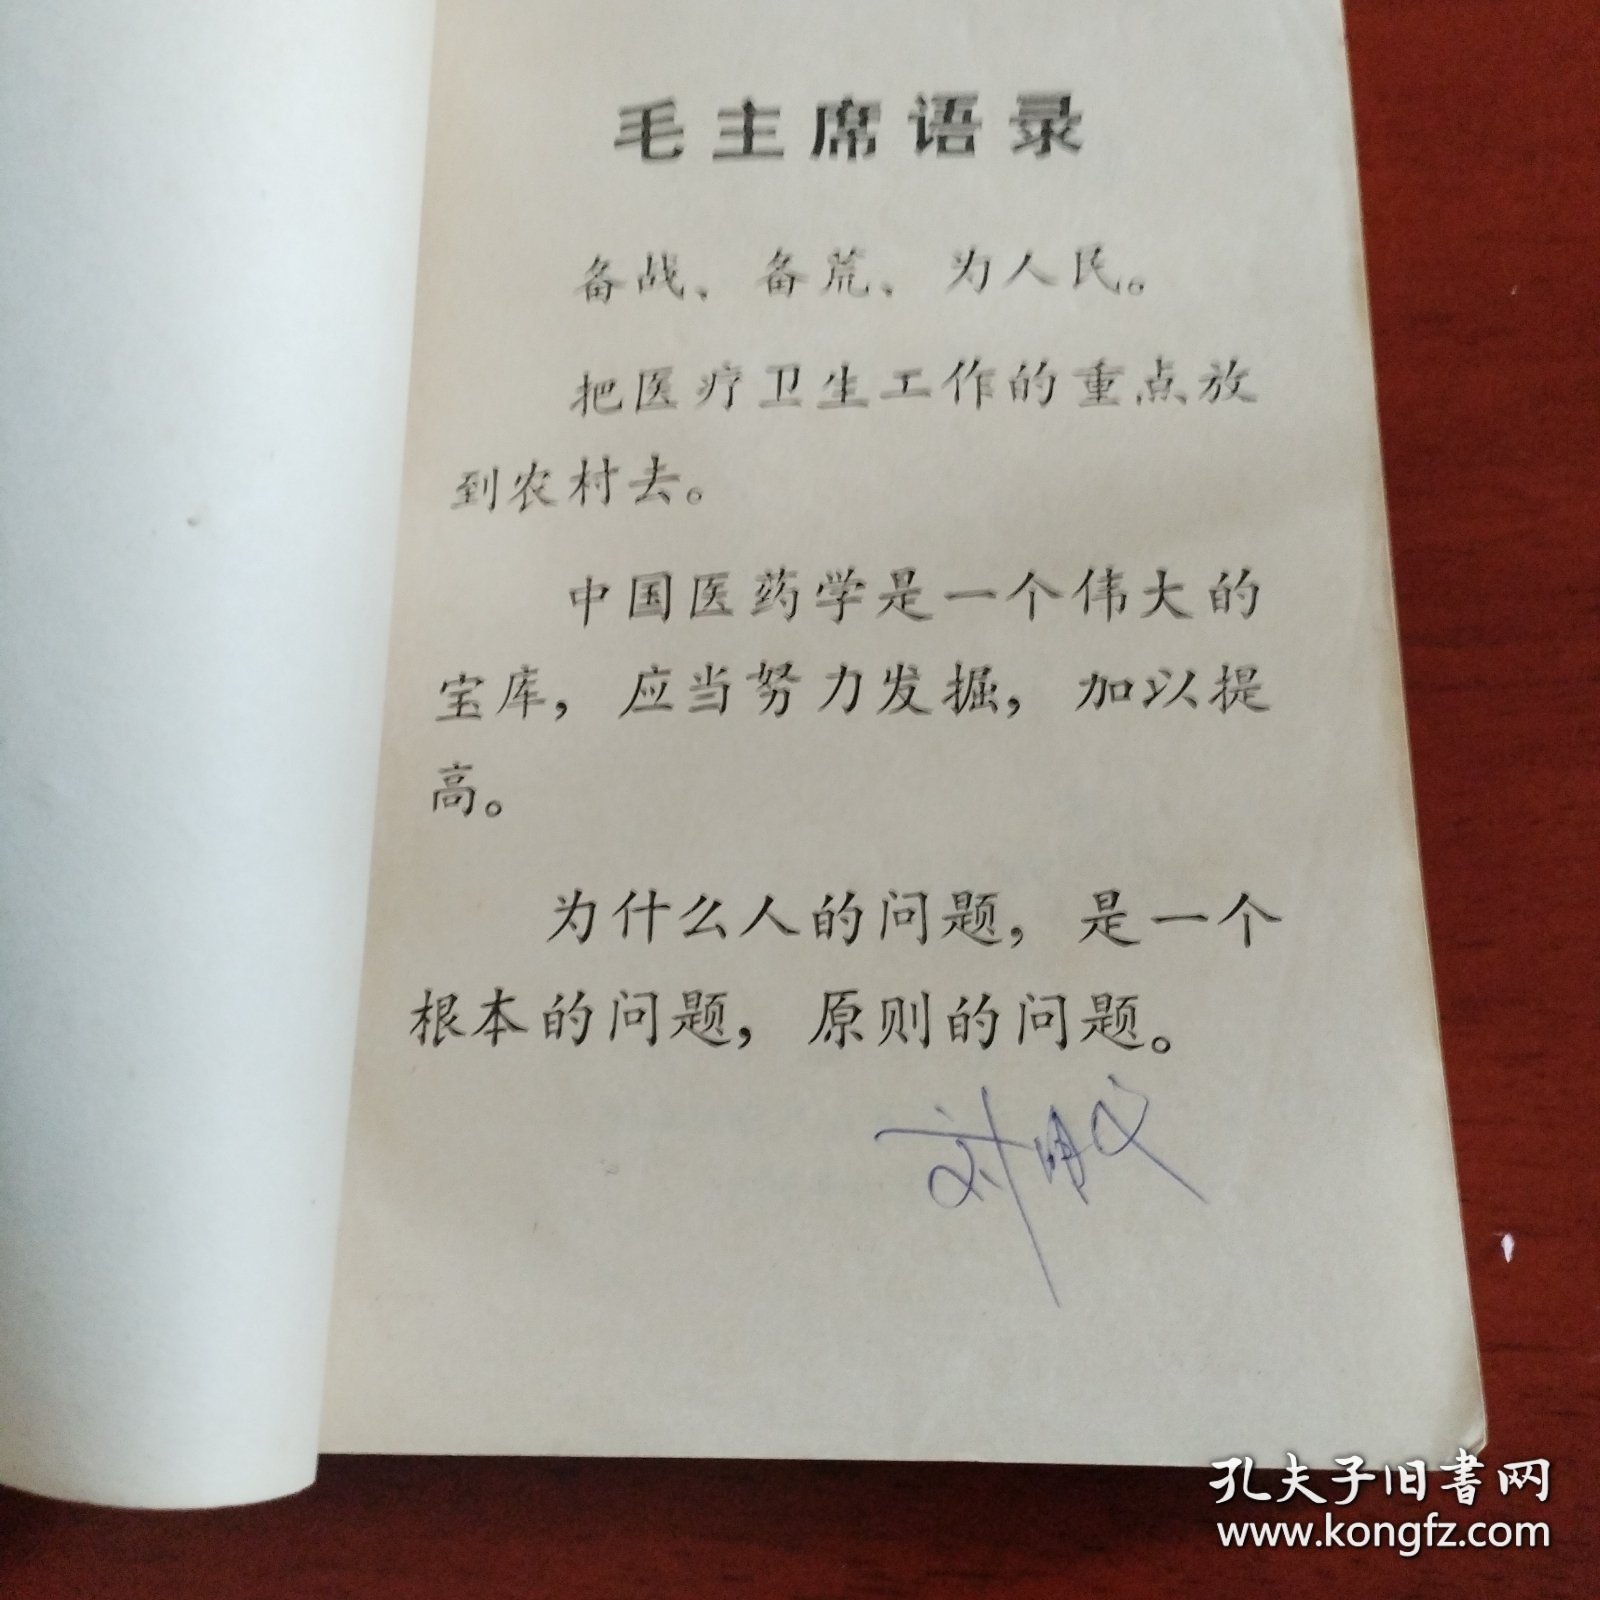 毛主席语录
备战、备荒、为人民。
把医疗卫生工作的重点放
到农村去。
中国医药学是一个伟大的
宝库，应当努力发掘，加以提
高。
为什么人的问题，是一个
根本的问题，原则的问题。
刘明义
孔夫子旧书网
www.kongfz.com